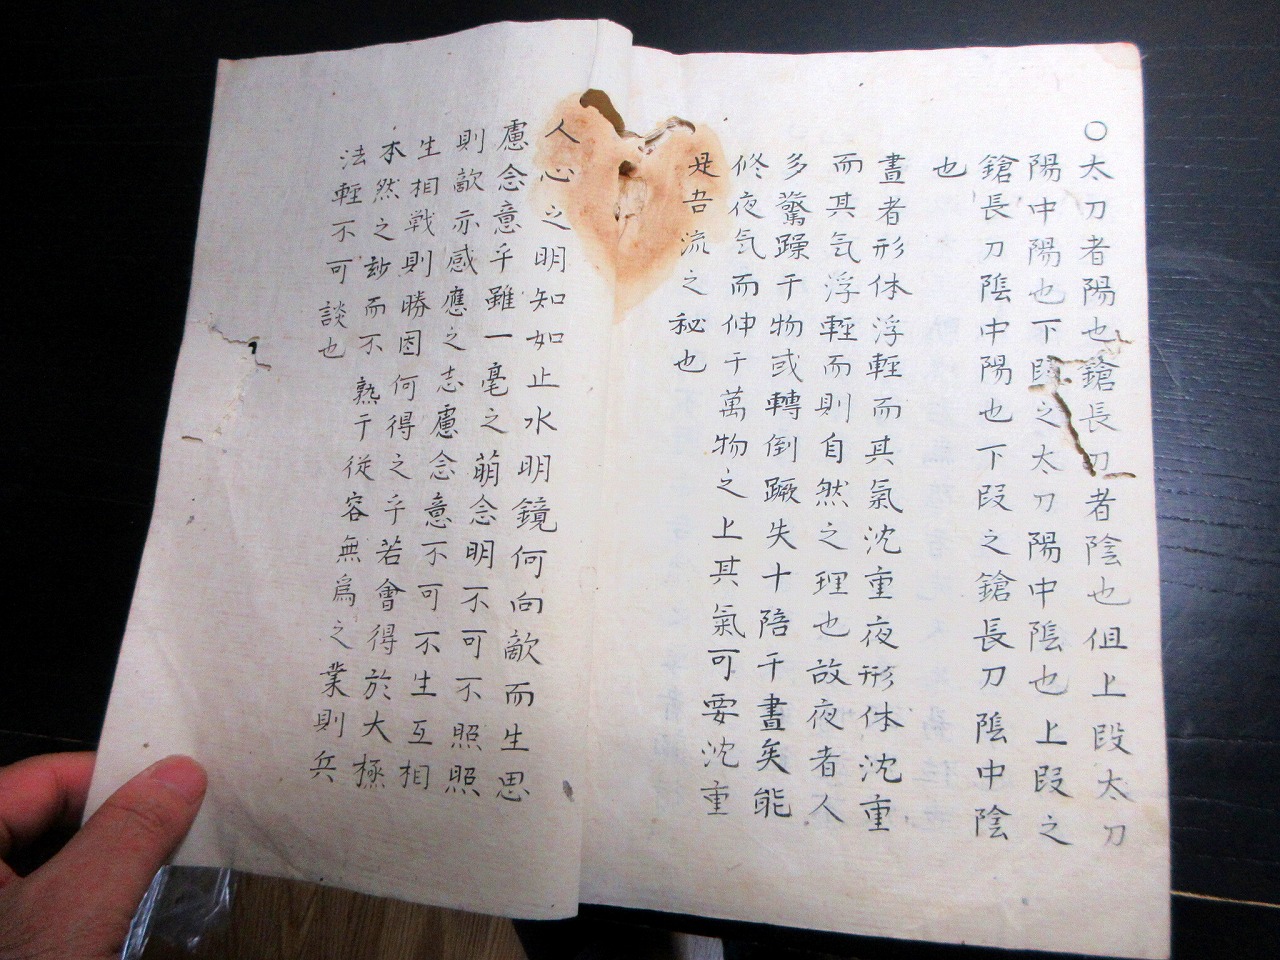 ○太刀者陽也鎗長刀者陰也但上段太刀
陽中陽也下段之太刀陽中陰也上段之
鎗長刀陰中陽也下段之鎗長刀陰中陰
也
晝者形体浮輕而其氣沈重夜形体沈重
而其気浮輕而則自然之理也故夜者人
多驚躁于物或轉倒蹶失十陪于晝矣能
修夜気而伸于萬物之上其氣可要沈重
是吾流之秘也
人心之明知如止水明鏡何向敵而生思
慮念意乎雖一毫之萠念明不可不照照
則敵亦感應之志慮念意不可不生互相
生相戦則勝因何得之乎若會得於大極
本然之玅而不熟于従容無爲之業則兵
法輕不可談也